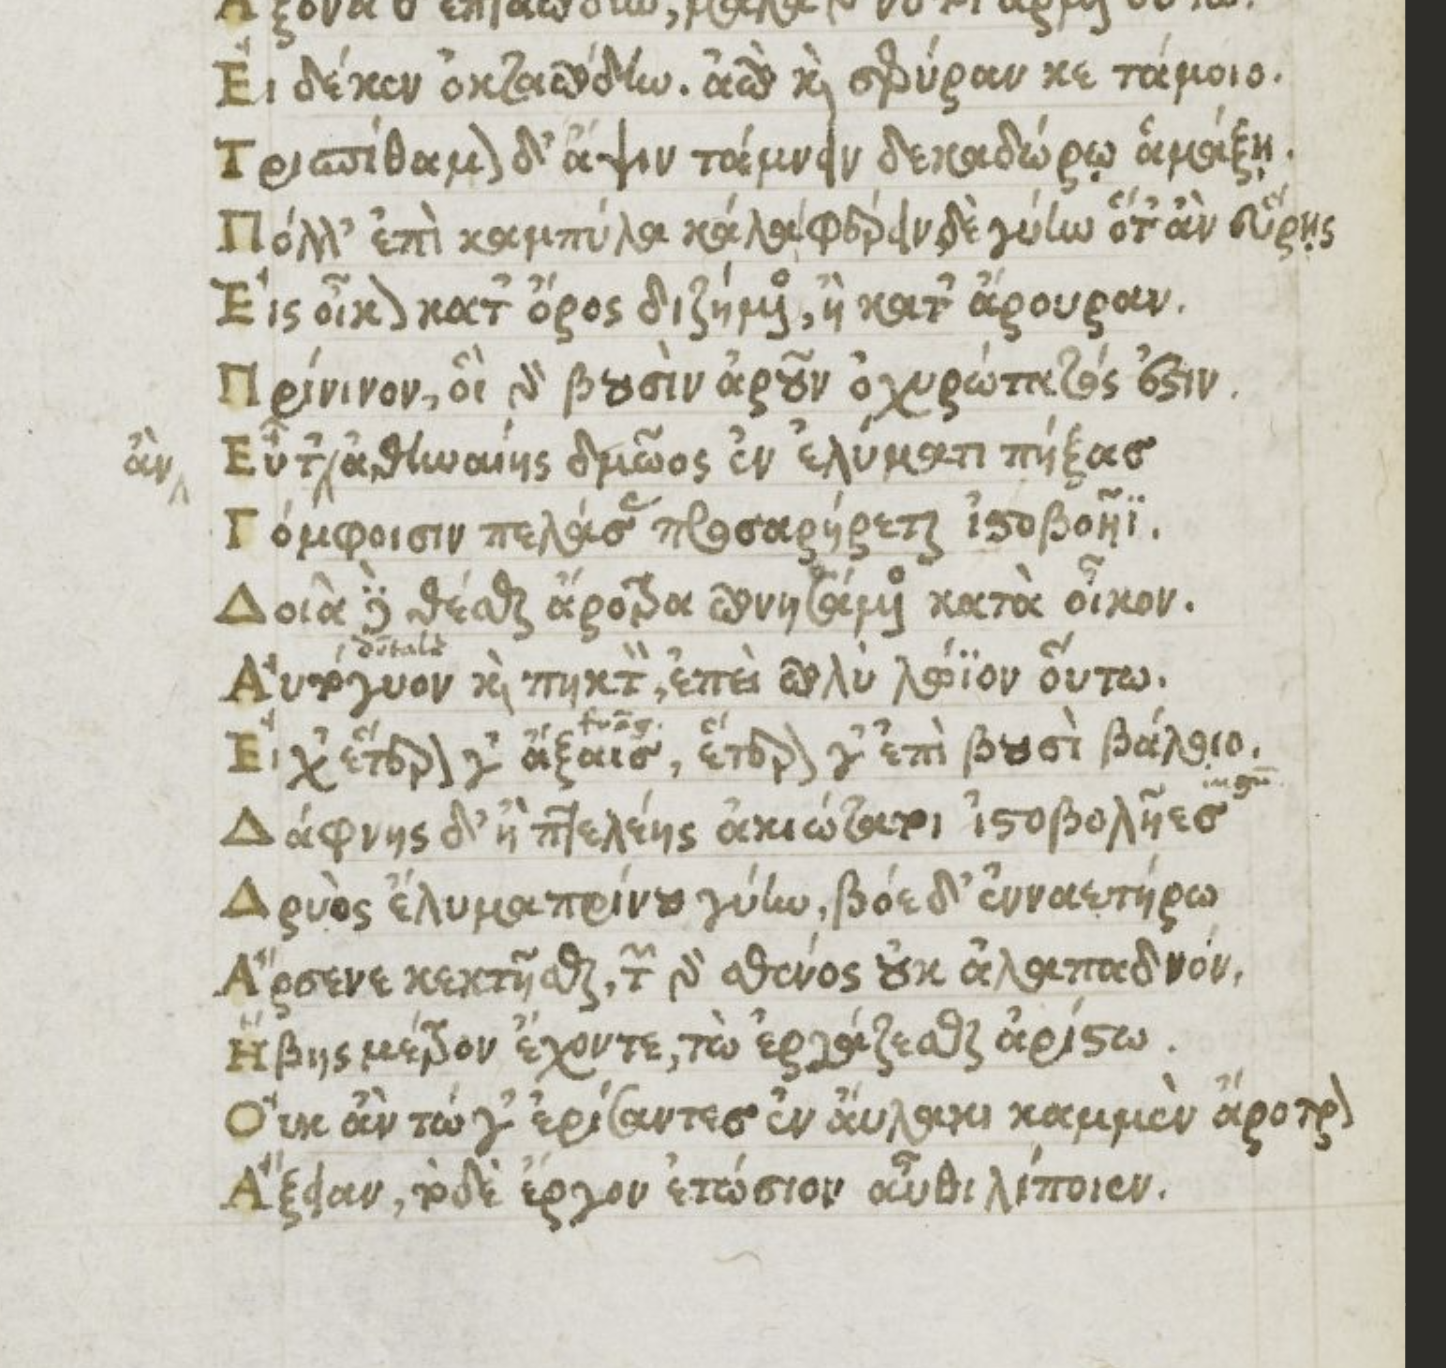 Ἄξονα θ' ἑπταπόδην, μάλα γάρ νύ τοι ἄρμενον οὕτω.
Εἰ δέ κεν ὀκταπόδην. ἀπὸ καὶ σφύραν κε τάμοιο.
Τρισπίθαμον δ' ἄψιν τάμνειν δεκαδώρῳ ἁμάξῃ.
Πόλλ' ἐπὶ καμπύλα κάλα, φέρειν δὲ γύην ὅτ' ἂν εὕρῃς
Εἰς οἶκον κατ' ὄρος διζήμενος, ἢ κατ' ἄρουραν.
Πρίνινον, ὃς γὰρ βουσὶν ἀροῦν ὀχυρώτατός ἐστιν.
ἂν Εὖτ' ἀθηναίης δμῶος ἐν ἐλύματι πήξας
Γόμφοισιν πελάσας προσαρήρεται ἱστοβοῆϊ.
Δοιὰ δὲ θέσθαι ἄροτρα πονησάμενος κατὰ οἶκον.
dētale
Αὐτόγυον καὶ πηκτὸν, ἐπεὶ πολὺ λώϊον οὕτω.
Εἴ χ' ἕτερον γ' ἄξαις, ἕτερόν γ' ἐπὶ βουσὶ βάλοιο.
Δάφνης δ' ἢ πτελέης ἀκιώτατοι ἱστοβολῆες
Δρυὸς ἔλυμα πρίνου γύην, βόε δ' ἐνναετήρω
Ἄρσενε κεκτῆσθαι, τῶν γὰρ σθένος οὐκ ἀλαπαδνόν,
Ἥβης μέτρον ἔχοντε, τὼ ἐργάζεσθαι ἀρίστω.
Οὐκ ἂν τώ γ' ἐρίσαντες ἐν αὔλακι καμμὲν ἄροτρον
Ἄξειαν, τὸ δὲ ἔργον ἐτώσιον αὖθι λίποιεν.